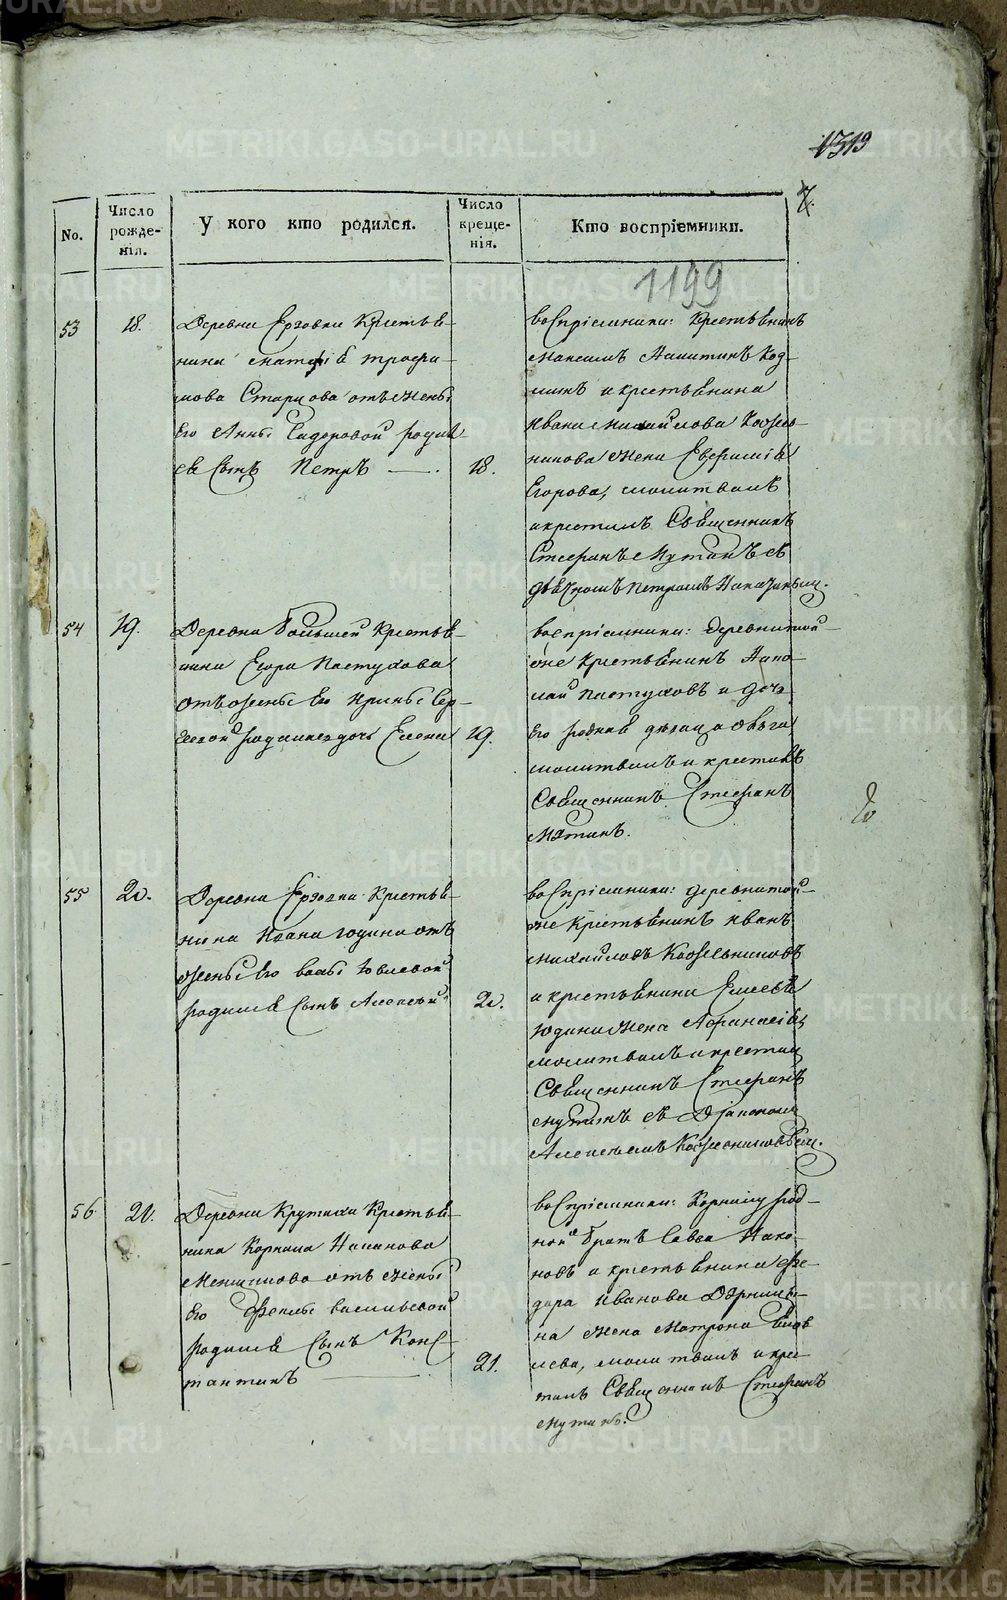 1313
7.
No.
Число рожде-нія.
У кого кто родился.
Число креще-нія.
Кто воспріемники.
1199
53
18.
Деревни Ерзовки Крестья-
нина Матфія Трофи-
мова Старцова отъ жены
его Анны Сидоровой родил-
ся Сынъ Петръ
18.
воспріемники: Крестьянинъ
Максимъ Никитинъ
и крестьянина
Ивана Михайлова Кожев-
никова жена Евфимія
Егорова, молитвилъ
и крестилъ Священникъ
Стефанъ Мутинъ съ
дьячкомъ Петромъ
54
19.
Деревни Большей Крестья-
нина Егора Пастухова
отъ жены его Ирины Сер-
геевой родилась дочь Елена
19.
воспріемники: деревни той-
же Крестьянинъ Нико-
лай Пастуховъ и дочь
его родная дѣвица Ольга
молитвилъ и крестилъ
Священникъ Стефанъ
Мутинъ.
55
20.
Деревни Ерзовки Крестья-
нина Ивана Юдина отъ
жены его Иевлевой
родился Сынъ Алексѣй
20.
воспріемники: деревни той-
же Крестьянинъ Иванъ
Михайловъ Кожевниковъ
и крестьянина Елисея
Юдина жена Афанасія,
молитвилъ и крестилъ
Священникъ Стефанъ
Мутинъ съ Дьякономъ
Алексѣемъ Кожевниковымъ.
56
21.
Деревни Крутихи Крестья-
нина Корнила
Меншикова отъ жены
его Феклы Васильевой
родился Сынъ Конс-
тантинъ
21.
воспріемники: Корнилу род-
ной братъ Савва
и крестьянина Фе-
дора Иванова
на жена Матрона
молитвилъ и крес-
тилъ Священникъ Стефанъ
Мутинъ.
METRIKI.GASO-URAL.RU